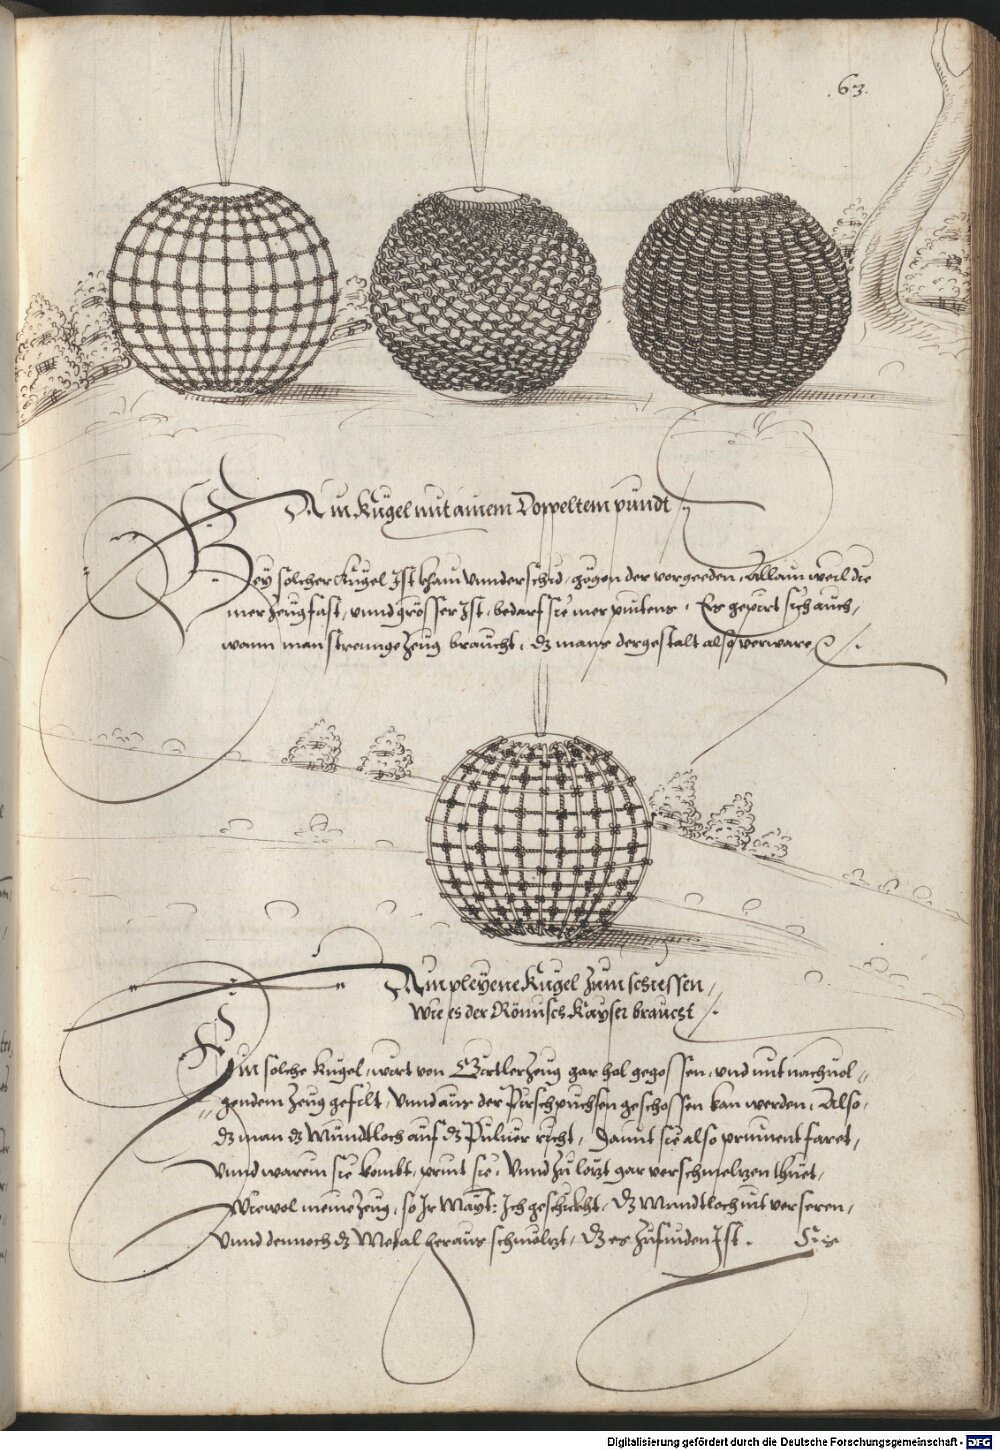 63.
Ain Kugel mit ainem Doppeltem pundt /.
Bey solcher Kugel Ist khain vnnderschid / gögen der vorgeenden, Allain weil die
mer Zeug fast, vnnd grösser Ist, bedarf sie mer pintens. Es gepirt sich auch,
wann man strennge Zeug braucht, dz mans dergestalt also verware /.
Ain pleyene Kugel Zum schiessen,
Wie es der Römisch Kayser braucht /.
Ein solche Kugel, wirt von Gürtler Zeug gar hol gegossen, vnd mit nachuol„
„gendem Zeug gefilt, Vnnd aus der Pirschpüchsen geschossen kan werden, Also,
dz man dz Mundtloch auf dz Puluer richt, Damit sie also prinnent faret,
Vnnd warein sie kombt, print sie, Vnnd Zu lezt gar verschmeltzen thuet,
Wiewol meine Zeug, so Ir Mayt: Ich geschickht, dz Mundtloch nit verseren,
Vnnd dennoch dz Metal heraus schmöltzt, dz es Zufinden Ist.
Digitalisierung gefördert durch die Deutsche Forschungsgemeinschaft - DFG